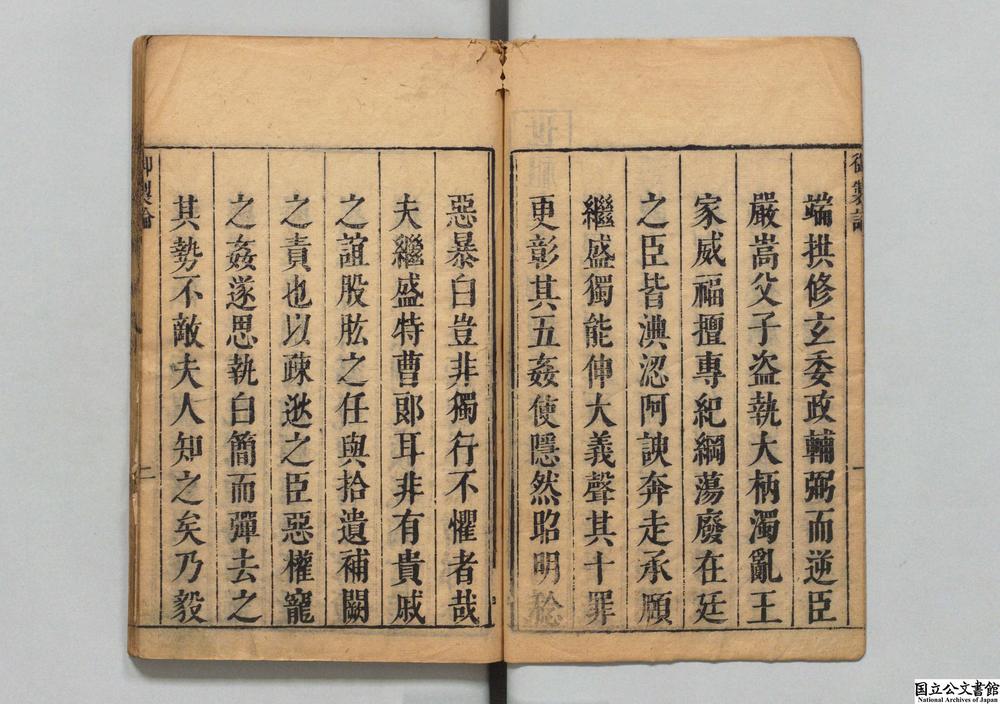 御製論
一
端拱修玄委政輔弼而逆臣
嚴嵩父子盗執大柄濁亂王
家威福擅專紀綱蕩廢在廷
之臣皆淟涊阿諛奔走承順
繼盛獨能伸大義聲其十罪
更彰其五姦使隱然昭明稔
惡暴白豈非獨行不懼者哉
夫繼盛特曹郎耳非有貴戚
之誼股肱之任與拾遺補闕
之責也以疎逖之臣惡權寵
之姦遂思執白簡而彈去之
其勢不敵夫人知之矣乃毅
御製論
二
国立公文書館
National Archives of Japan